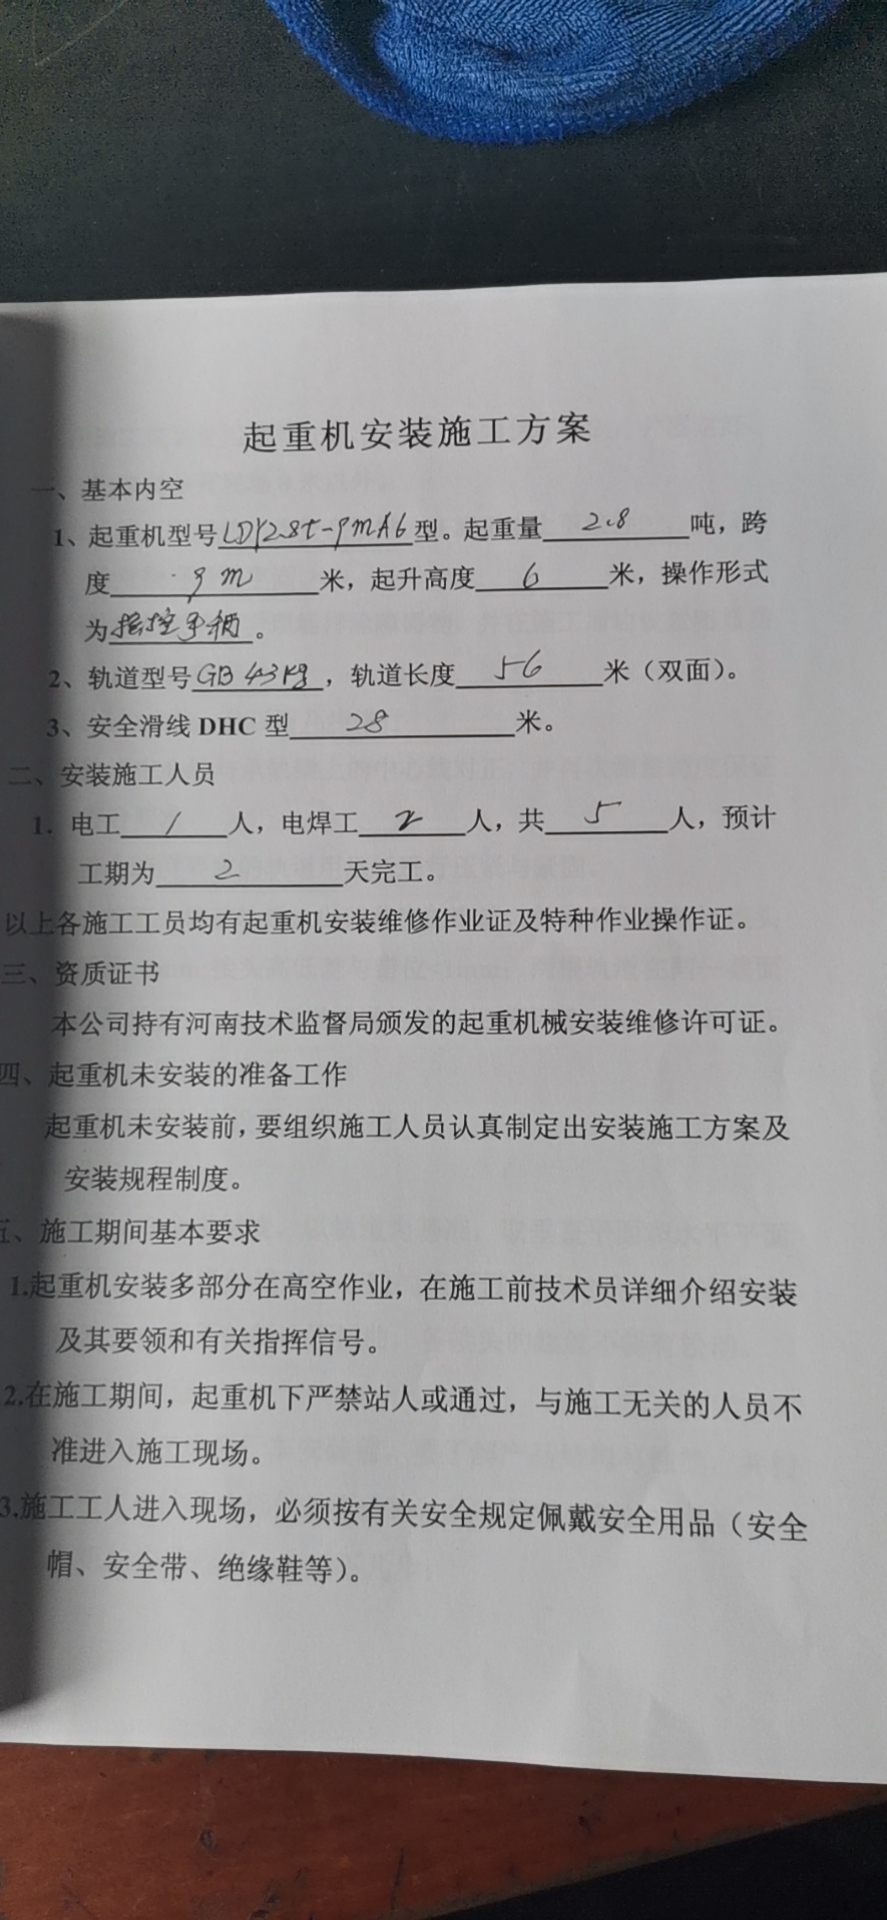 起重机安装施工方案
一、基本内空
1、起重机型号LDY2.8t-9mA6型。起重量2.8吨，跨
度9m米，起升高度6米，操作形式
为摇控手柄。
2、轨道型号GB43kg，轨道长度56米（双面）。
3、安全滑线DHC型28米。
二、安装施工人员
1．电工1人，电焊工2人，共5人，预计
工期为2天完工。
以上各施工工员均有起重机安装维修作业证及特种作业操作证。
三、资质证书
本公司持有河南技术监督局颁发的起重机械安装维修许可证。
四、起重机未安装的准备工作
起重机未安装前，要组织施工人员认真制定出安装施工方案及
安装规程制度。
五、施工期间基本要求
1.起重机安装多部分在高空作业，在施工前技术员详细介绍安装
及其要领和有关指挥信号。
2.在施工期间，起重机下严禁站人或通过，与施工无关的人员不
准进入施工现场。
3.施工工人进入现场，必须按有关安全规定佩戴安全用品（安全
帽、安全带、绝缘鞋等）。